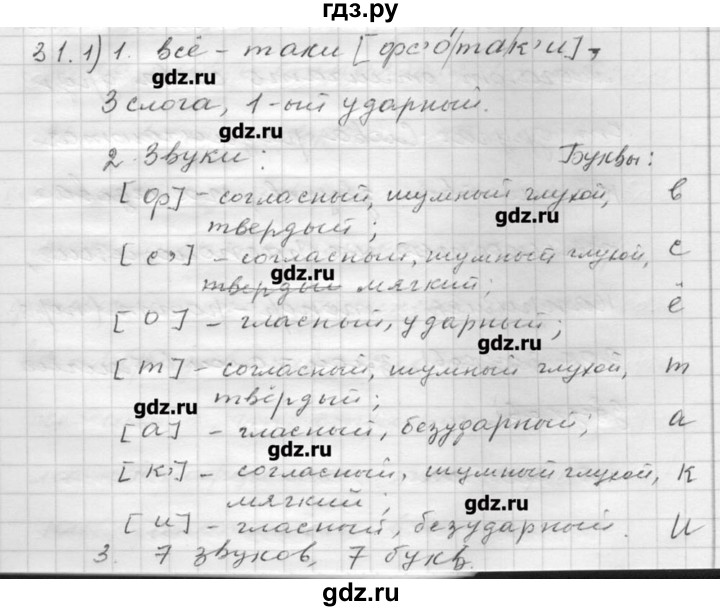 гдз.ру
31. 1) 1. всё - таки [фс'о́/та/к'и],
gdz.ru
3 слога, 1-ый ударный.
gdz.ru
2. Звуки: Буквы:
[ф] - согласный, шумный глухой, в
gdz.ru
твердый;
[с'] - согласный, шумный глухой, с
gdz.ru
твердый мягкий;
[о] - гласный, ударный; ё
gdz.ru
[т] - согласный, шумный глухой, т
твёрдый;
gdz.ru
[а] - гласный, безударный; а
gdz.ru
[к'] - согласный, шумный глухой, к
мягкий;
gdz.ru
[и] - гласный, безударный. и
3. 7 звуков, 7 букв.
gdz.ru